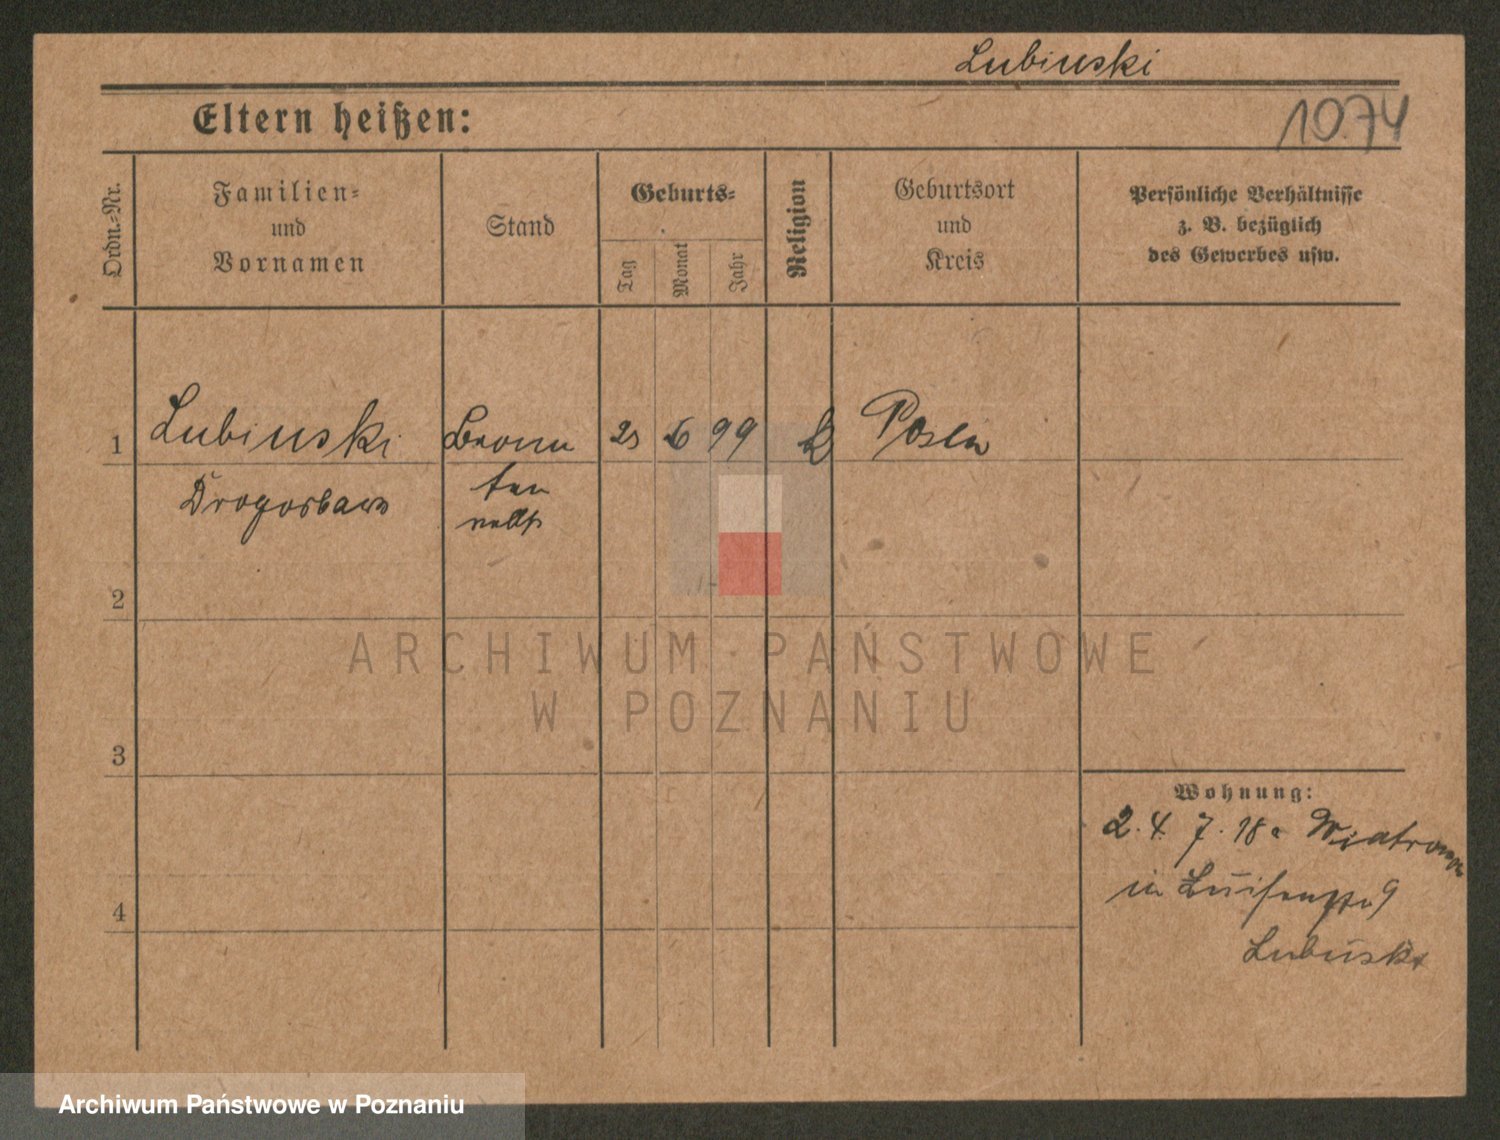 Lubinski
Eltern heißen:
1074
Ordn.-Nr.
Familien-
und
Vornamen
Stand
Geburts-
Tag
Monat
Jahr
Religion
Geburtsort
und
Kreis
Persönliche Verhältnisse
z. B. bezüglich
des Gewerbes usw.
1 Lubinski 6 99 Posen
2
3
4
Wohnung:
2. 4. 7. 18
in Luisenstr 9
Lubinski
ARCHIWUM PAŃSTWOWE
W POZNANIU
Archiwum Państwowe w Poznaniu